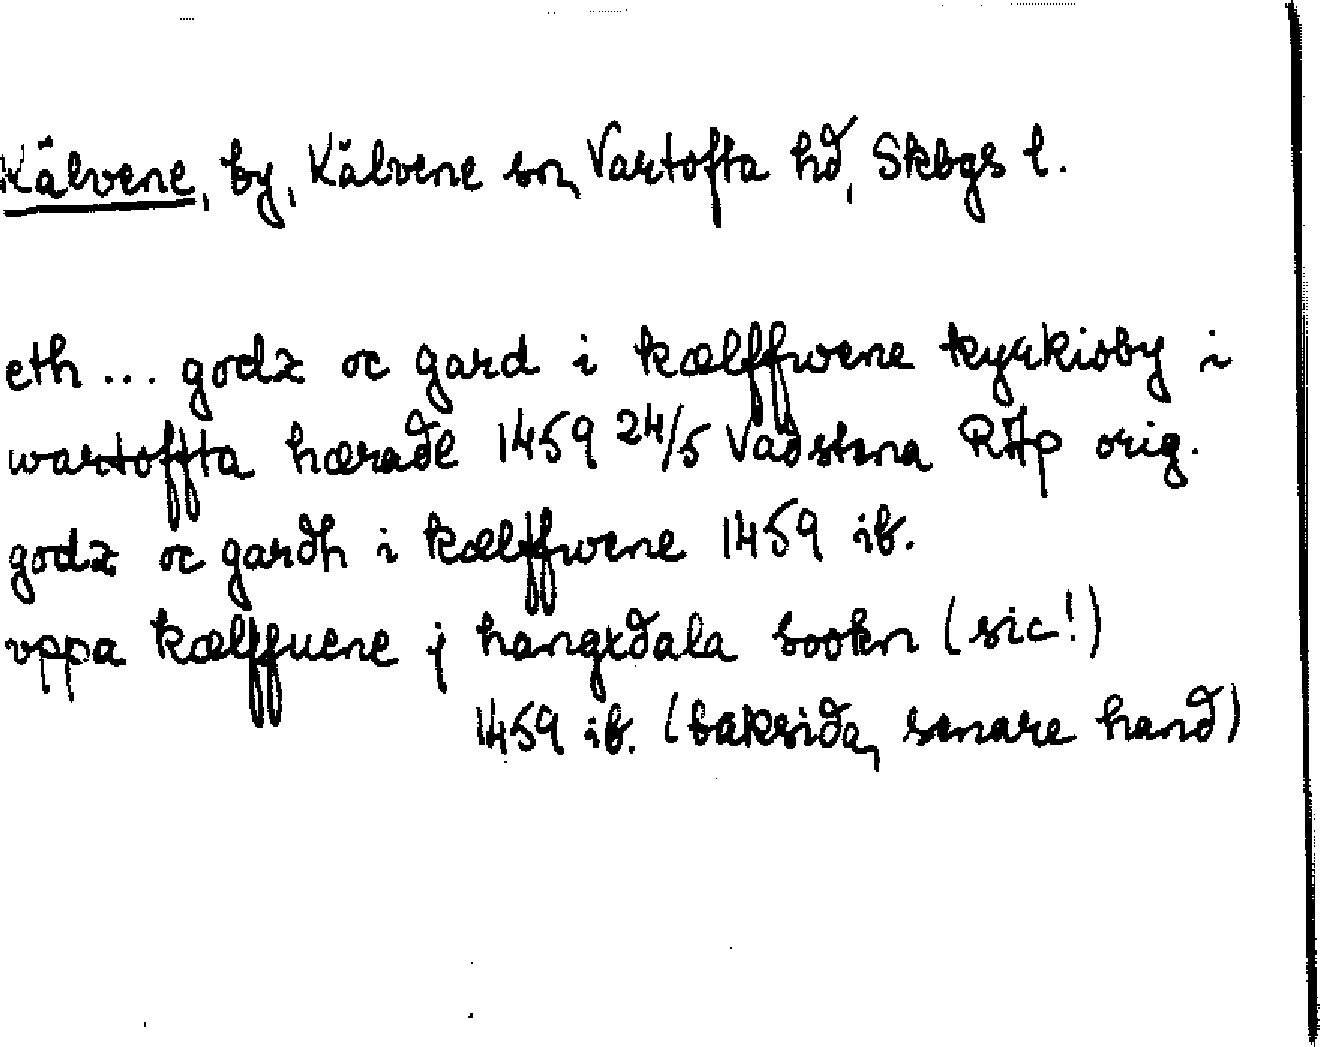 Kälvene, by, Kälvene sn, Vartofta hd, Skbgs l.
eth ... godz oc gard i kælffwene kyrkioby i
wartoffta hærade 1459 24/5 Vadstena RAp orig.
godz oc gardh i kælffwene 1459 ib.
vppa kælffuene j hangxdala sookn (sic!)
1459 ib. (baksida, senare hand)